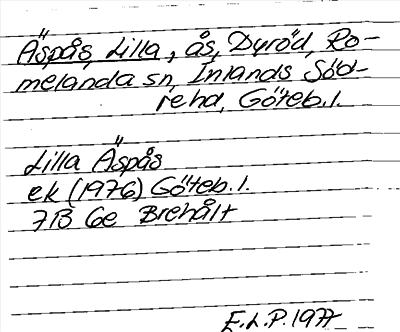 Äspås, Lilla, ås, Dyröd, Ro-
melanda sn, Inlands Söd-
re hd, Göteb. l.
Lilla Äspås
ek (1976) Göteb. l.
7B 6e Brehålt
E.L.P. 1977